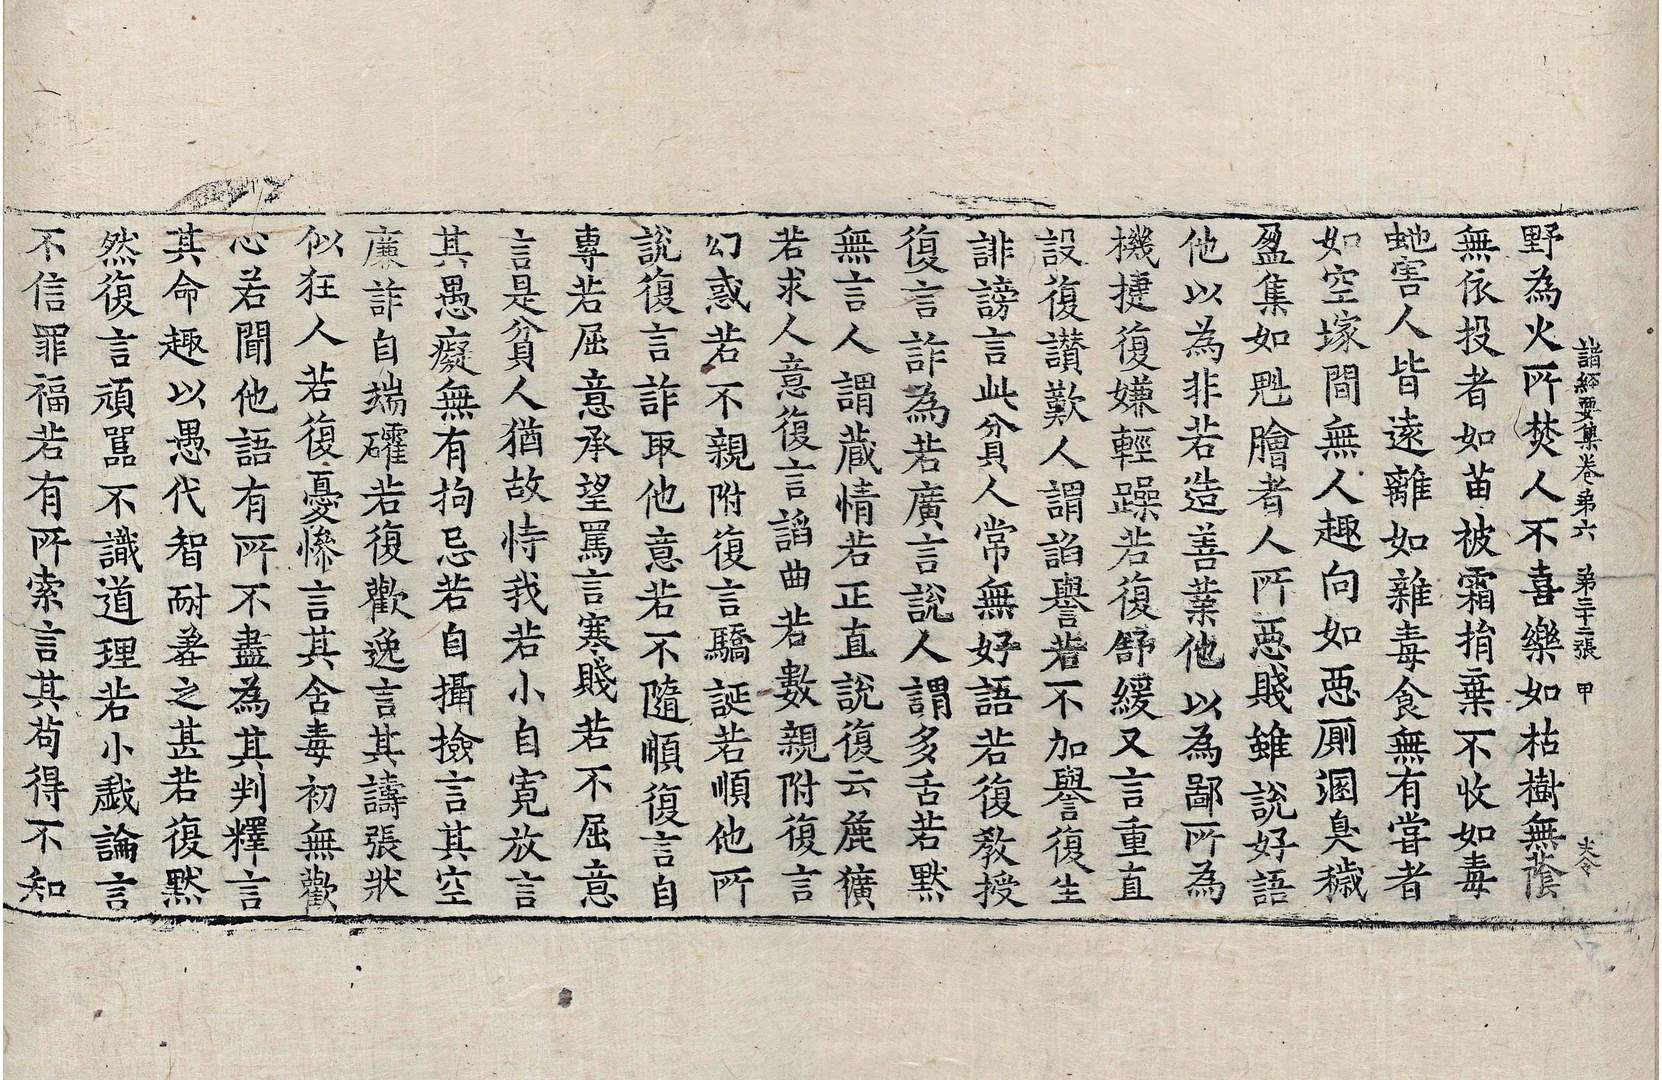 諸經要集卷苐六 苐三十二張 甲
野為火所焚人不喜樂如枯樹無蔭
無依投者如苗被霜捐棄不收如毒
虵害人皆遠離如雜毒食無有甞者
如空塚間無人趣向如惡厠溷臭穢
盈集如魁膾者人所惡賤雖說好語
他以為非若造善業他以為鄙所為
機捷復嫌輕躁若復舒緩又言重直
設復讃歎人謂諂譽若不加譽復生
誹謗言此貧人常無好語若復教授
復言詐為若廣言說人謂多舌若默
無言人謂藏情若正直說復云麁獷
若求人意復言謟曲若數親附復言
幻惑若不親附復言驕誕若順他所
說復言詐取他意若不隨順復言自
專若屈意承望罵言寒賤若不屈意
言是貧人猶故恃我若小自寬放言
其愚癡無有拘忌若自攝撿言其空
廉詐自端礭若復歡逸言其譸張狀
似狂人若復憂慘言其含毒初無歡
心若聞他語有所不盡為其判釋言
其命趣以愚代智耐羞之甚若復默
然復言頑嚚不識道理若小戱論言
不信罪福若有所索言其苟得不知